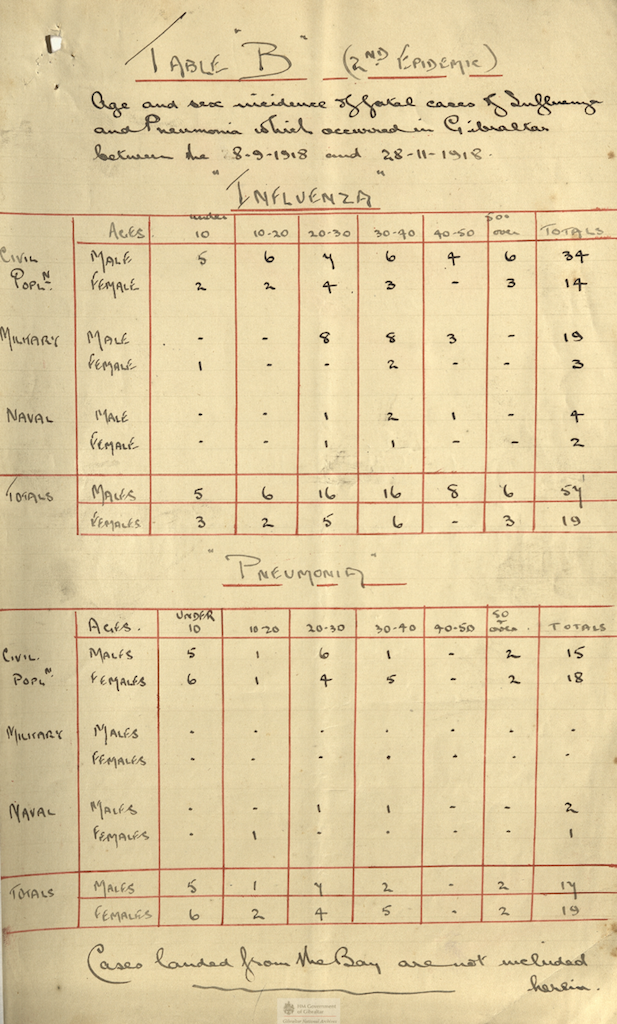 TABLE "B" (2ND EPIDEMIC)
Age and sex incidence of fatal cases of Influenza
and Pneumonia which occurred in Gibraltar
between the 8-9-1918 and 28-11-1918.
"INFLUENZA"
AGES under 10 10-20 20-30 30-40 40-50 50 & over TOTALS
CIVIL MALE 5 6 7 6 4 6 34
POPLN. FEMALE 2 2 4 3 - 3 14
MILITARY MALE - - 8 8 3 - 19
FEMALE 1 - - 2 - - 3
NAVAL MALE - - 1 2 1 - 4
FEMALE - - 1 1 - - 2
TOTALS MALES 5 6 16 16 8 6 57
FEMALES 3 2 5 6 - 3 19
"PNEUMONIA"
AGES. UNDER 10 10-20 20-30 30-40 40-50 50 & over. TOTALS
CIVIL. MALES 5 1 6 1 - 2 15
POPLN. FEMALES 6 1 4 5 - 2 18
MILITARY MALES - - - - - - -
FEMALES - - - - - - -
NAVAL MALES - - 1 1 - - 2
FEMALES - 1 - - - - 1
TOTALS MALES 5 1 7 2 - 2 17
FEMALES 6 2 4 5 - 2 19
Cases landed from the Bay are not included
herein.
HM Government
of Gibraltar
Gibraltar National Archives